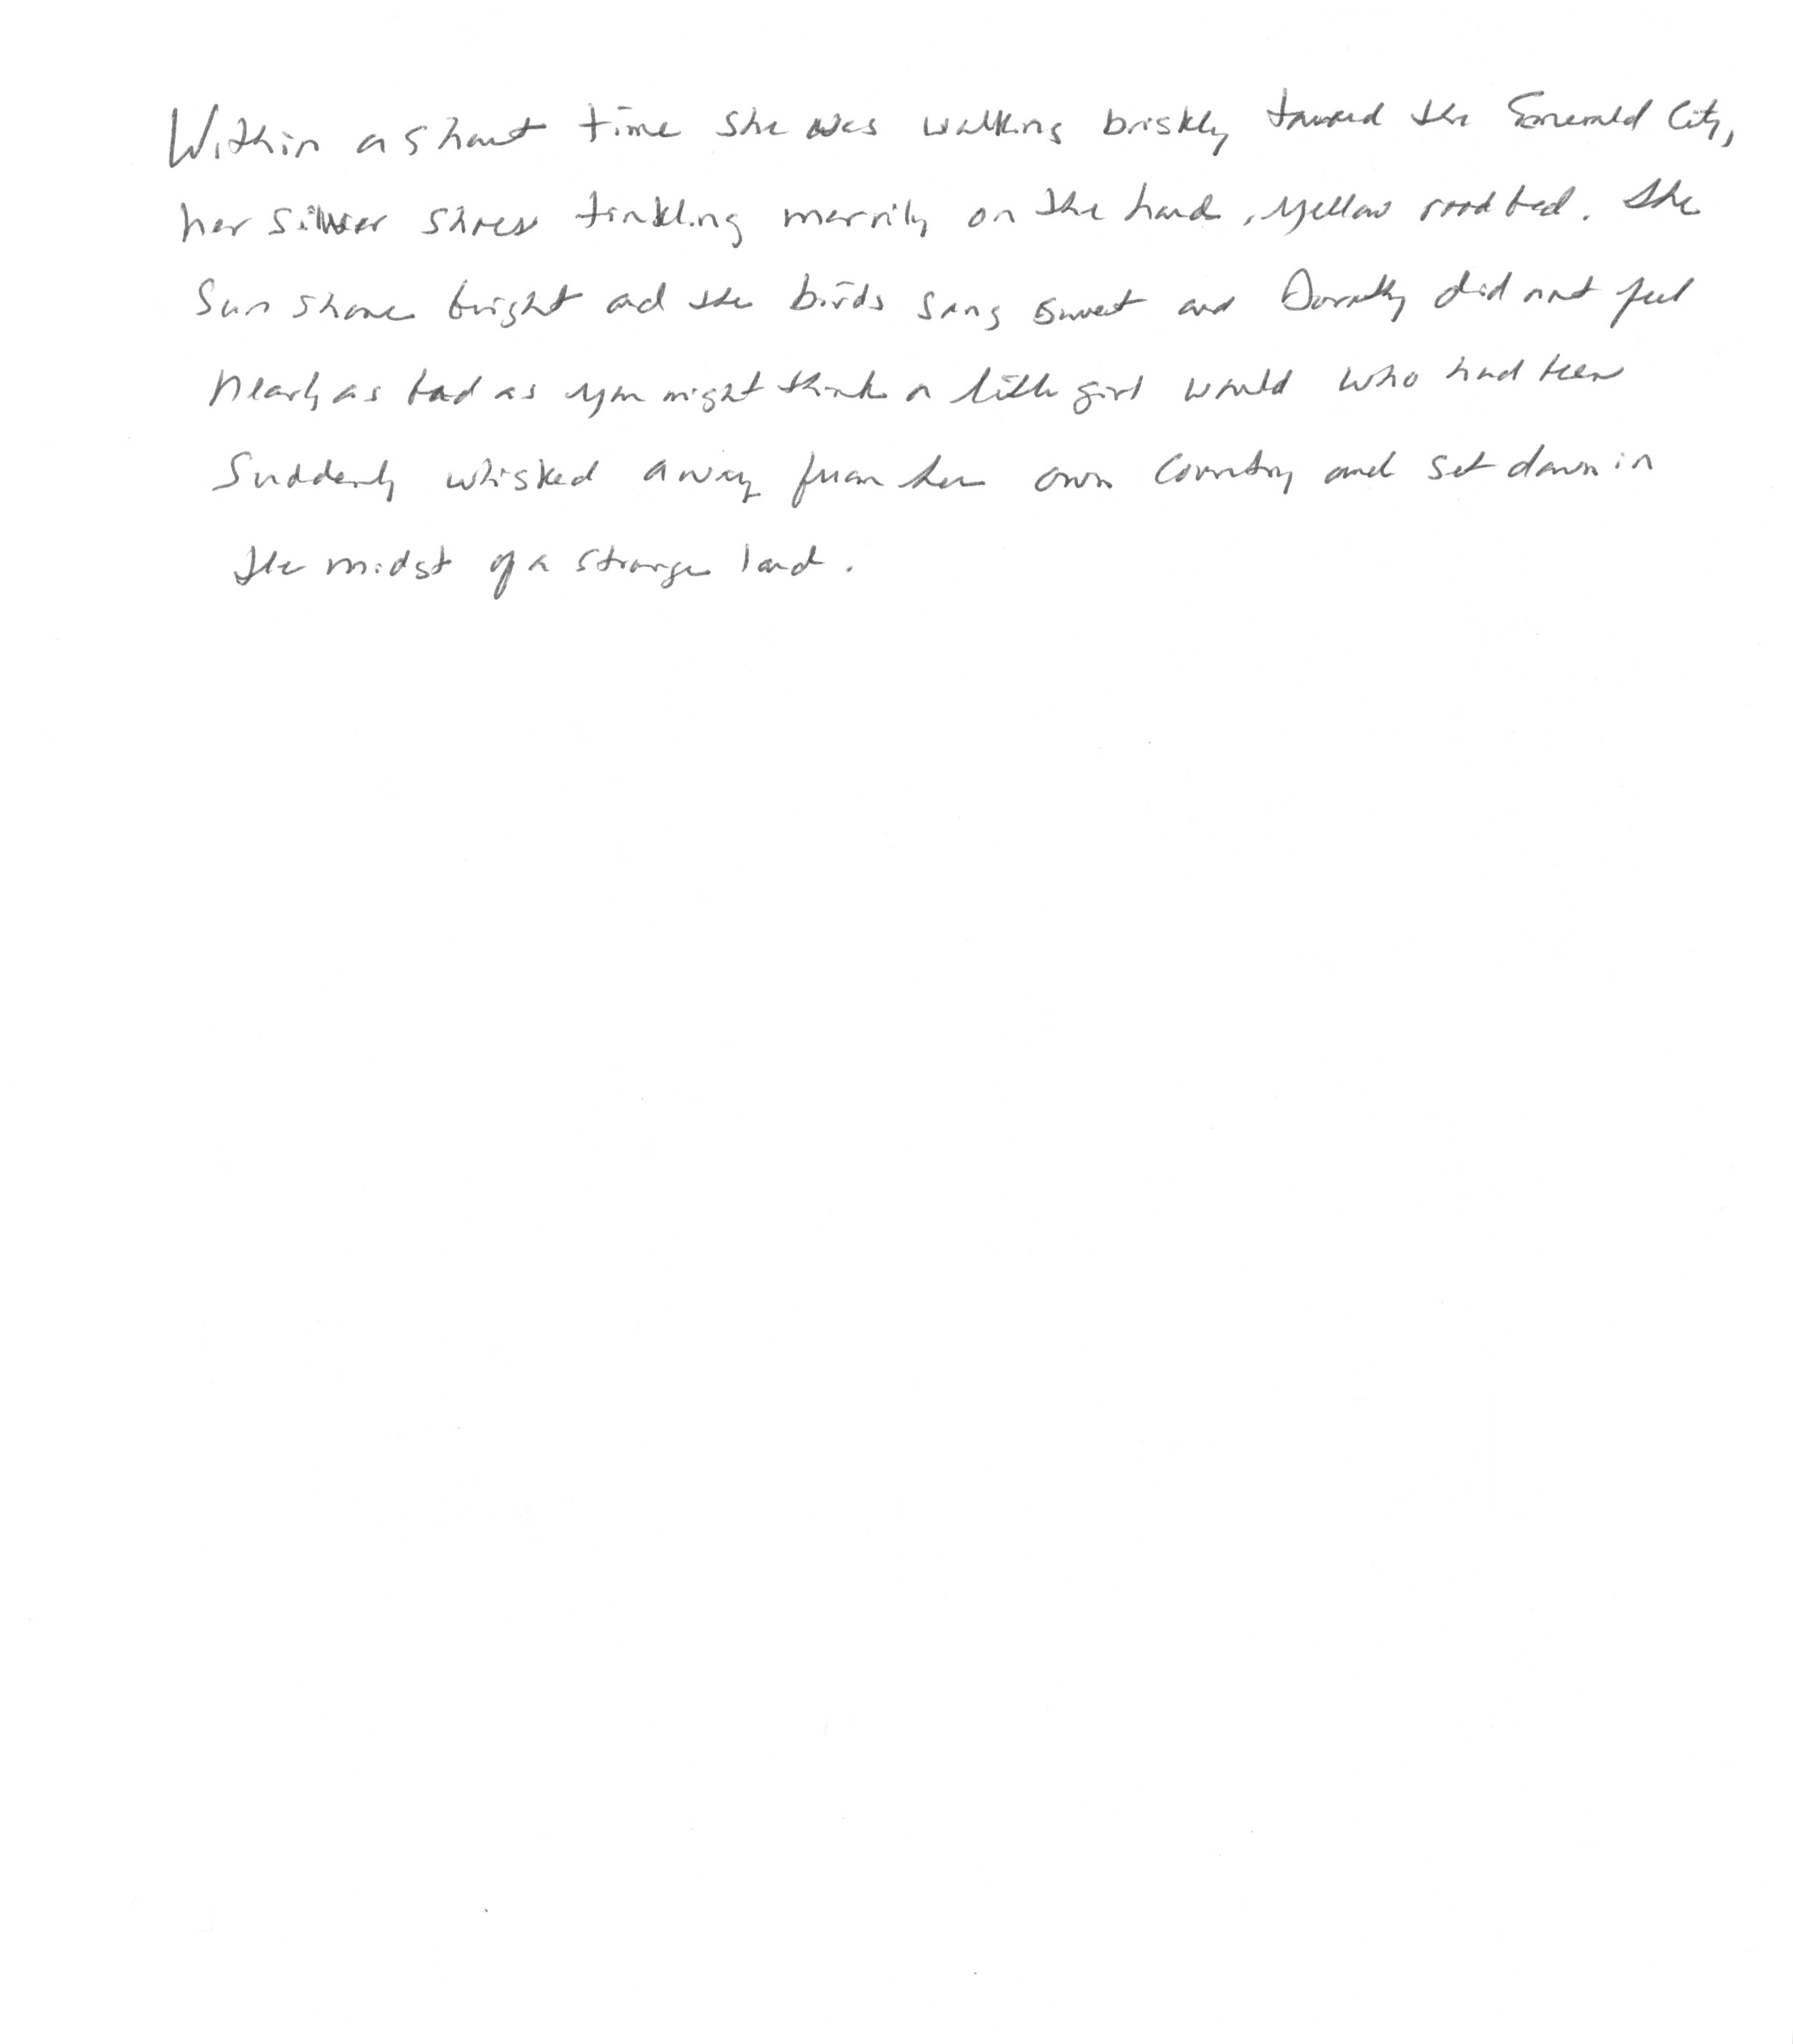 Within a short time she was walking briskly toward the Emerald City,
her silver shoes tinkling merrily on the hard, yellow roadbed. The
sun shone bright and the birds sang sweet and Dorothy did not feel
nearly as bad as you might think a little girl would who had been
suddenly whisked away from her own country and set down in
the midst of a strange land.